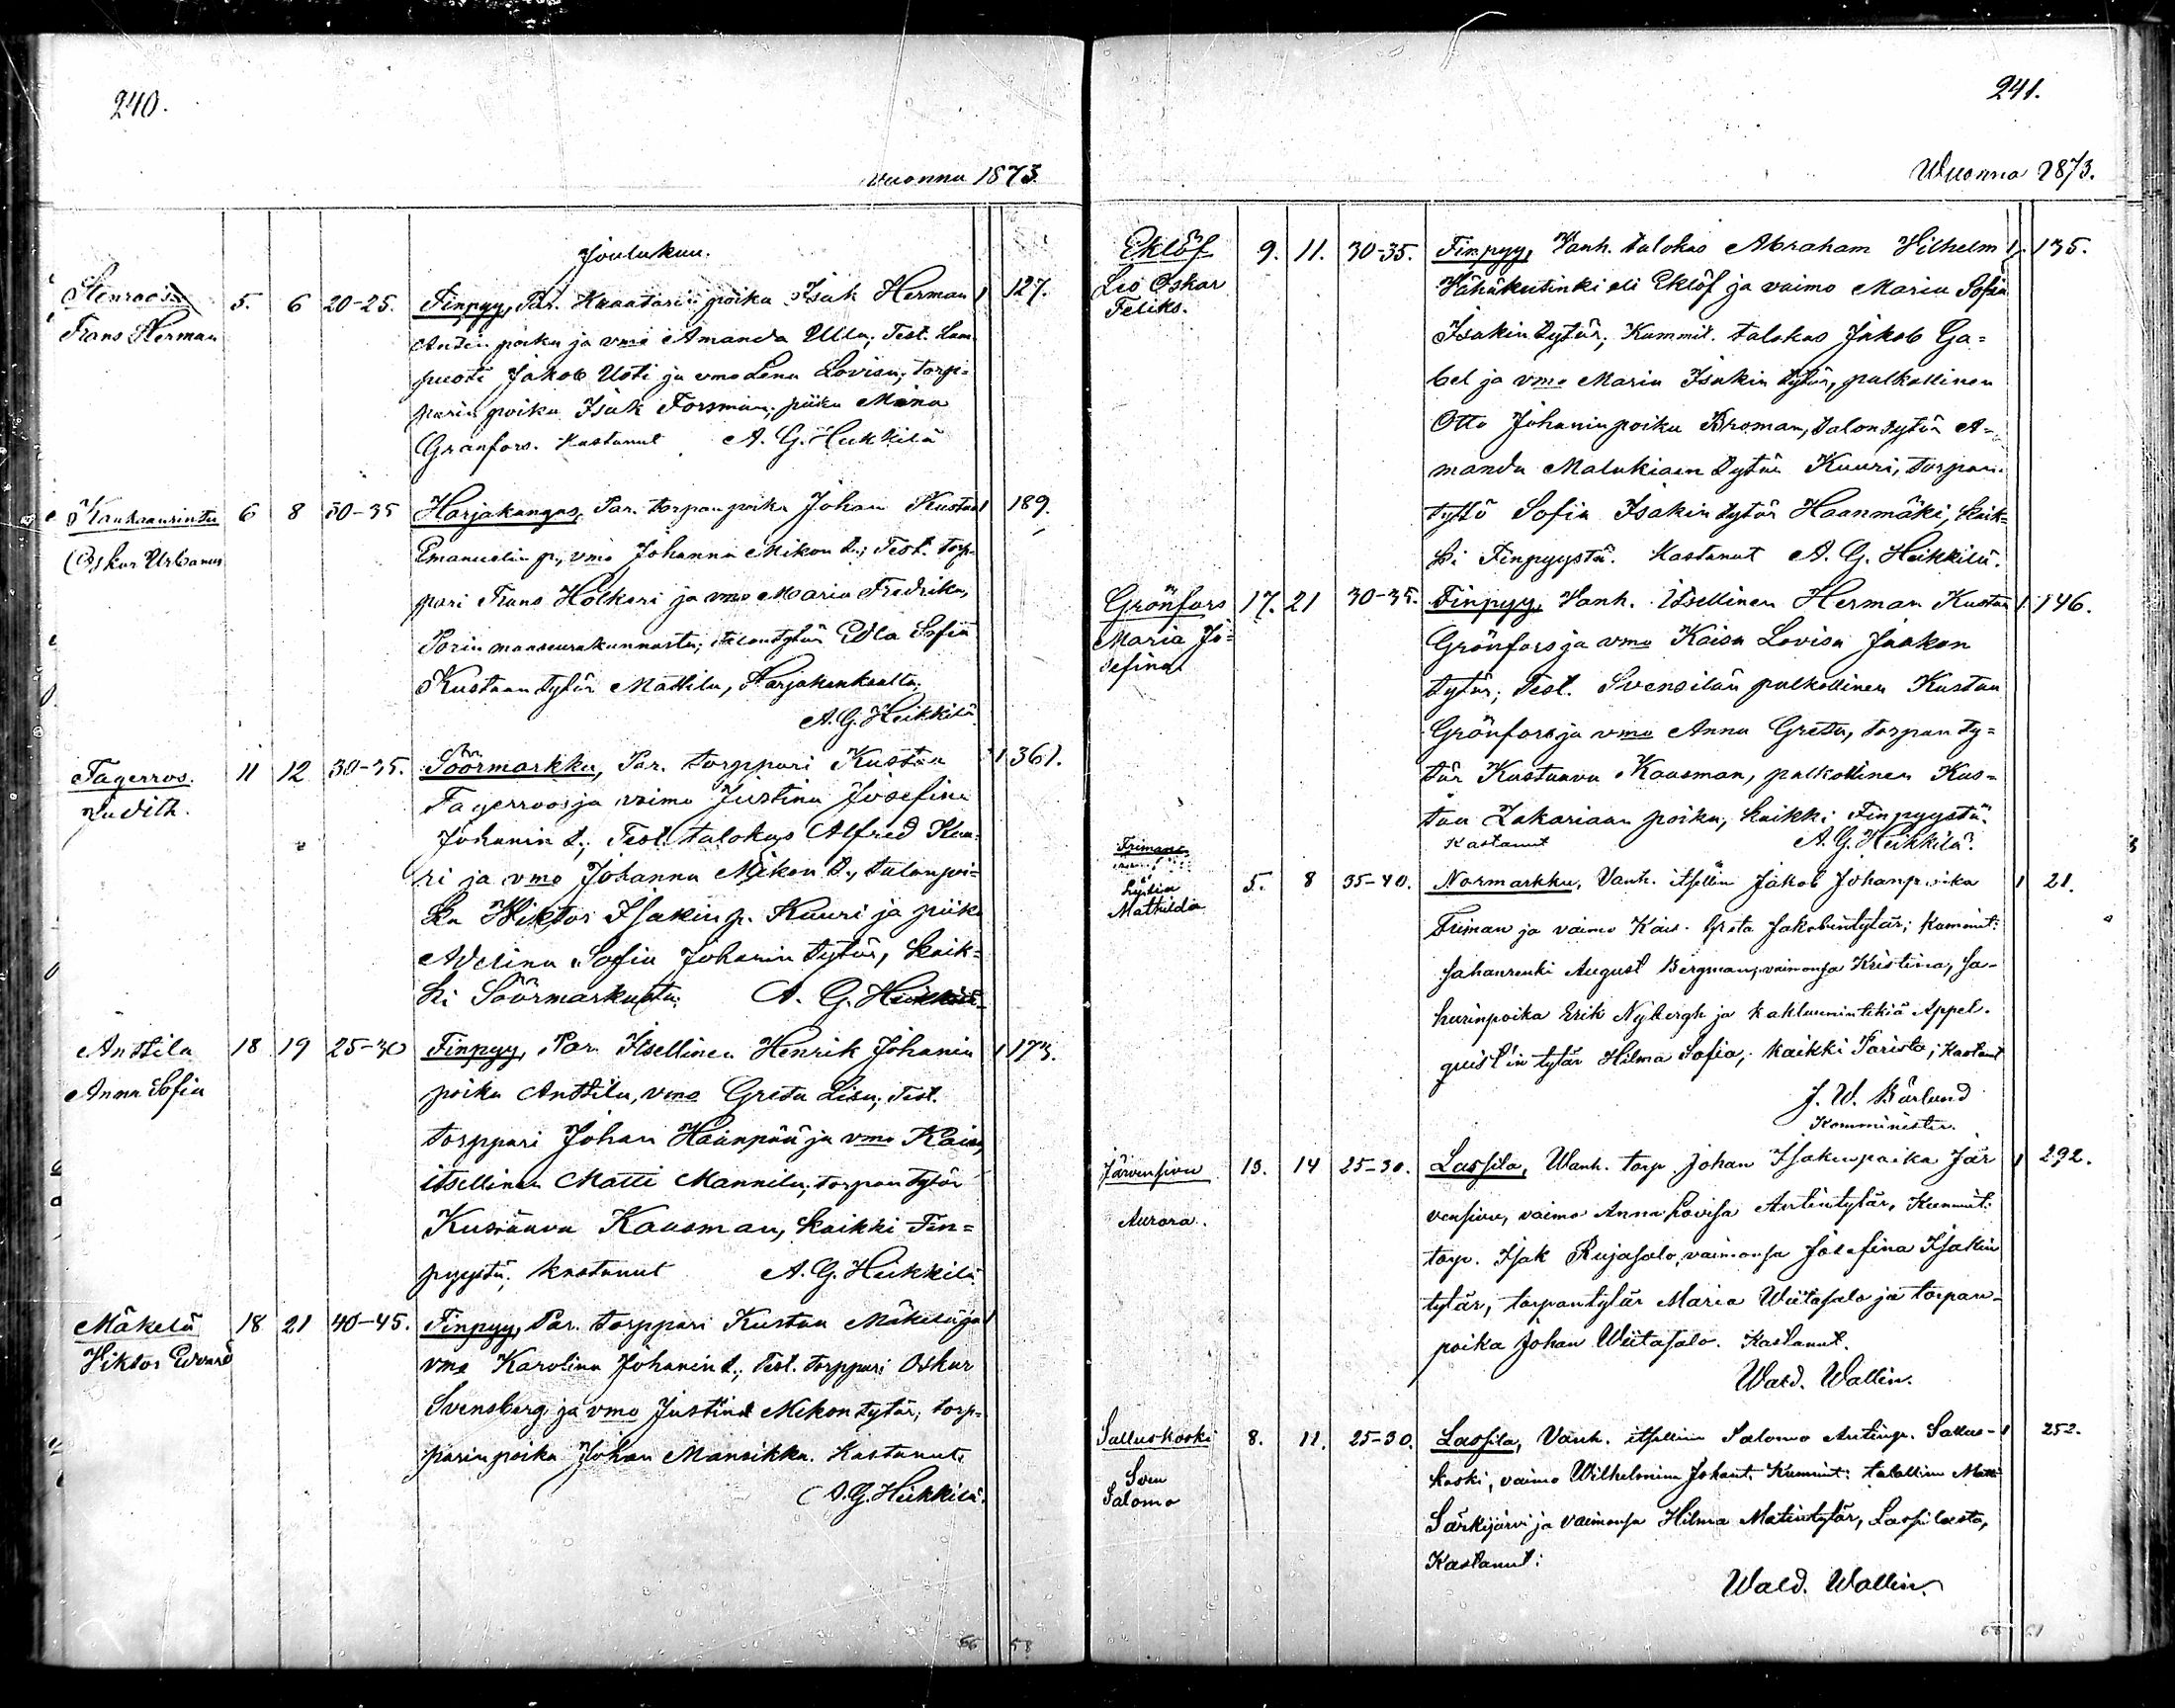 240.
Vuonna 1873.
Joulukuu.
Stenroos
Frans Herman
5. 6 20-25. Finpyy, Par. poika Isak Herman 1 127.
Antin poika ja vmo Amanda Ulla; Test. Lam-
puoti Jakob Uoti ja vmo Lena Lovisa; torp-
parin poika Isak Forsman; piika Mina
Granfors. Kastanut A. G. Heikkilä
Kankaanrinta
Oskar Urbanus
6 8 30-35 Harjakangas, Par. torpanpoika Johan Kustaa 1 189.
Emanuelin p., vmo Johanna Mikon t.; Test. torp-
pari Frans Hölkeri ja vmo Maria Fredrika,
Porin maaseurakunnasta; talontytär Edla Sofia
Kustaan tytär Mattila, Harjakankaalta;
A. G. Heikkilä
Fagerros.
Judith.
11 12 30-35. Söörmarkku, Par. torppari Kustaa 1 361.
Fagerroos ja vaimo Justina Josefina
Johanin t.; Test. talokas Alfred Kuu-
ri ja vmo Johanna Mikon t., talonpoi-
ka Wiktor Isakin p. Kuuri ja piika
Adelina Sofia Johanin tytär, kaik-
ki Söörmarkusta; A. G. Heikkilä
Anttila
Anna Sofia
18 19 25-30 Finpyy, Par. Itsellinen Henrik Johanin 1 173.
poika Anttila, vmo Greta Lisa; Test.
torppari Johan Haanpää ja vmo Kaisa,
itsellinen Matti Mannila; torpan tytär
Kustaava Kaasman, kaikki Fin-
pyystä; kastanut A. G. Heikkilä.
Mäkelä
Viktor Edvard
18 21 40-45. Finpyy, Par. torppari Kustaa Mäkelä ja 1
vmo Karolina Johanin t.; Test. torppari Oskar
Svensberg ja vmo Justina Mikon tytär; torp-
parin poika Johan Mansikka. Kastanut
A. G. Heikkilä.
66 58
241.
Wuonna 1873.
Eklöf
Leo Oskar
Feliks.
9. 11. 30-35. Finpyy, Vanh. talokas Abraham Vilhelm 1 135.
Vähäkutinki eli Eklöf ja vaimo Maria Sofia
Isakin tytär; Kummit. talokas Jakob Ga-
bel ja vmo Maria Isakin tytär, palkollinen
Otto Johanin poika Broman, talon tytär A-
manda Malakiaan tytär Kuuri, torpan
tyttö Sofia Isakin tytär Haanmäki, kaik-
ki Finpyystä. Kastanut A. G. Heikkilä.
Grönfors
Maria Jo-
sefina
17. 21 30-35. Finpyy, Vanh. Itsellinen Herman Kustaa 1 146.
Grönfors ja vmo Kaisa Lovisa Jaakon
tytär; Test. Svensilän palkollinen Kustaa
Grönfors ja vmo Anna Greta, torpan ty-
tär Kustaava Kaasman, palkollinen Kus-
taa Zakariaan poika, kaikki Finpyystä.
Kastanut A. G. Heikkilä.
Friman
Lydia
Mathilda
5. 8 35-40. Normarkku, Vanh. itsellin Jakob Johanpoika 1 21.
Friman ja vaimo Kais. Greta Jakobintytär; kummit:
Sahanrenki August Bergman, vaimonsa Kristina, Sa-
hurinpoika Erik Nybergh ja kakluunintekiä Appel-
quist'in tytär Hilma Sofia; kaikki Porista; Kastanut
J. W. Bärlund
Komminister.
Järvensivu
Aurora.
13. 14 25-30. Lassila, Wanh. torp. Johan Isakinpoika Jär 1 292.
vensivu, vaimo Anna Lovisa Antintytär, Kummit:
torp. Isak Rujasalo, vaimonsa Josefina Isakin
tytär, torpantytär Maria Wiitasalo ja torpan-
poika Johan Wiitasalo. Kastanut.
Wald. Wallin.
Salluskoski
Sven
Salomo
8. 11. 25-30. Lassila, Vanh. itsellinen Salomo Antinp. Sallus- 1 252.
koski, vaimo Wilhelmina Johant. Kummit: talollinen Matti
Särkijärvi ja vaimonsa Hilma Matintytär, Lassilasta,
Kastanut:
Wald. Wallin.